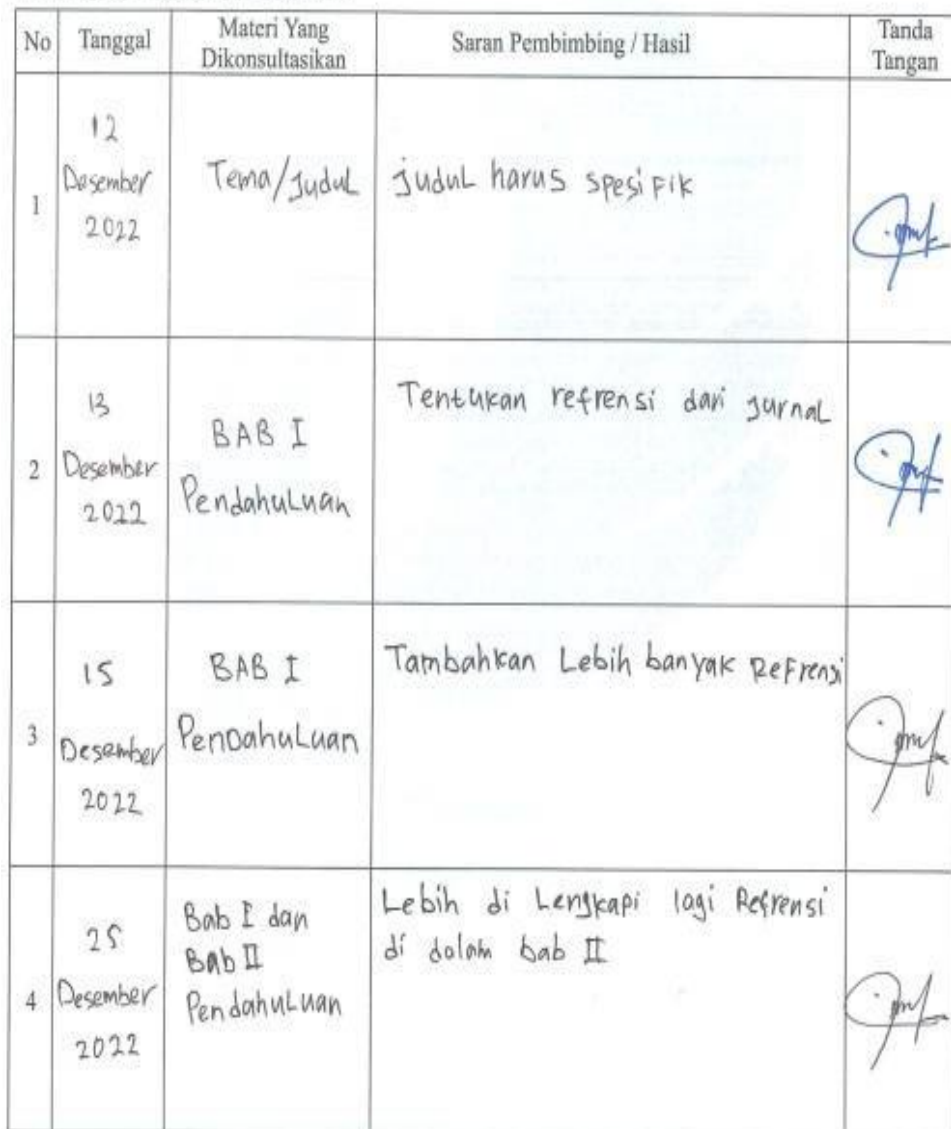 No Tanggal Materi Yang Dikonsultasikan Saran Pembimbing / Hasil Tanda Tangan
1
12
Desember
2022
Tema/Judul
Judul harus spesifik
2
13
Desember
2022
BAB I
Pendahuluan
Tentukan refrensi dari jurnal
3
15
Desember
2022
BAB I
Pendahuluan
Tambahkan Lebih banyak Refrensi
4
25
Desember
2022
Bab I dan
Bab II
Pendahuluan
Lebih di Lengkapi lagi Refrensi
di dalam bab II